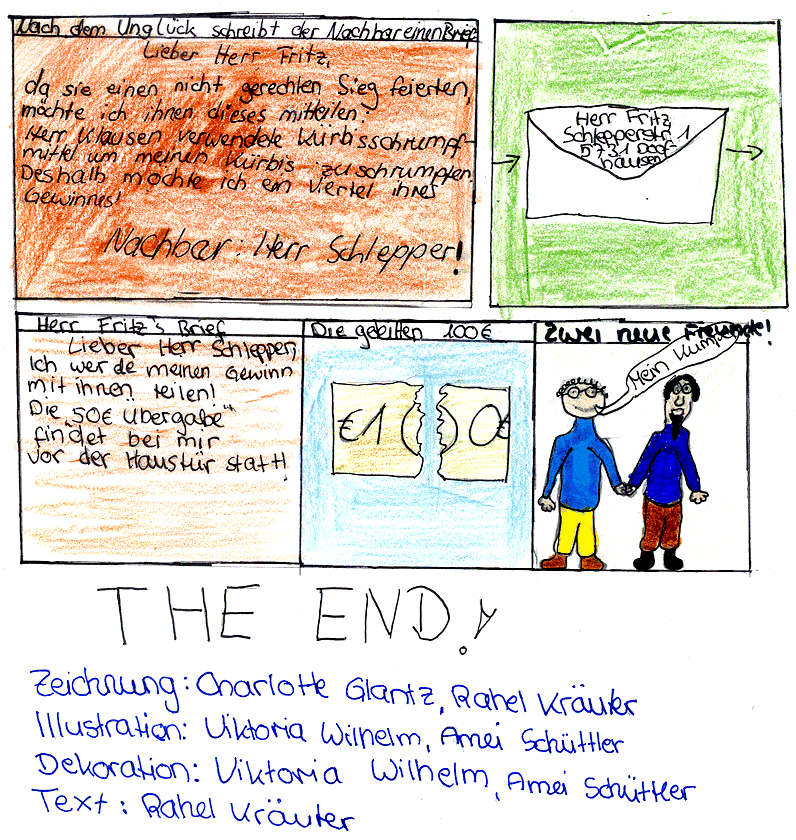 Nach dem Unglück schreibt der Nachbar einen Brief
Lieber Herr Fritz,
da sie einen nicht gerechten Sieg feierten,
möchte ich ihnen dieses mitteilen:
Herr Klausen verwendete Kürbisschrumpf-
mittel um meinen Kürbis zu schrumpfen.
Deshalb möchte ich ein Viertel ihres
Gewinnes!
Nachbar: Herr Schlepper!
Herr Fritz
Schlepperstr. 1
5731 Doof
hausen
Herr Fritz's Brief
Lieber Herr Schlepper,
Ich werde meinen Gewinn
mit ihnen teilen!
Die „50€ Übergabe"
findet bei mir
vor der Haustür statt!
Die geteilten 100€
€1 0 0€
Zwei neue Freunde!
Mein Kumpel
THE END!
Zeichnung: Charlotte Glantz, Rahel Kräuter
Illustration: Viktoria Wilhelm, Amei Schüttler
Dekoration: Viktoria Wilhelm, Amei Schüttler
Text: Rahel Kräuter